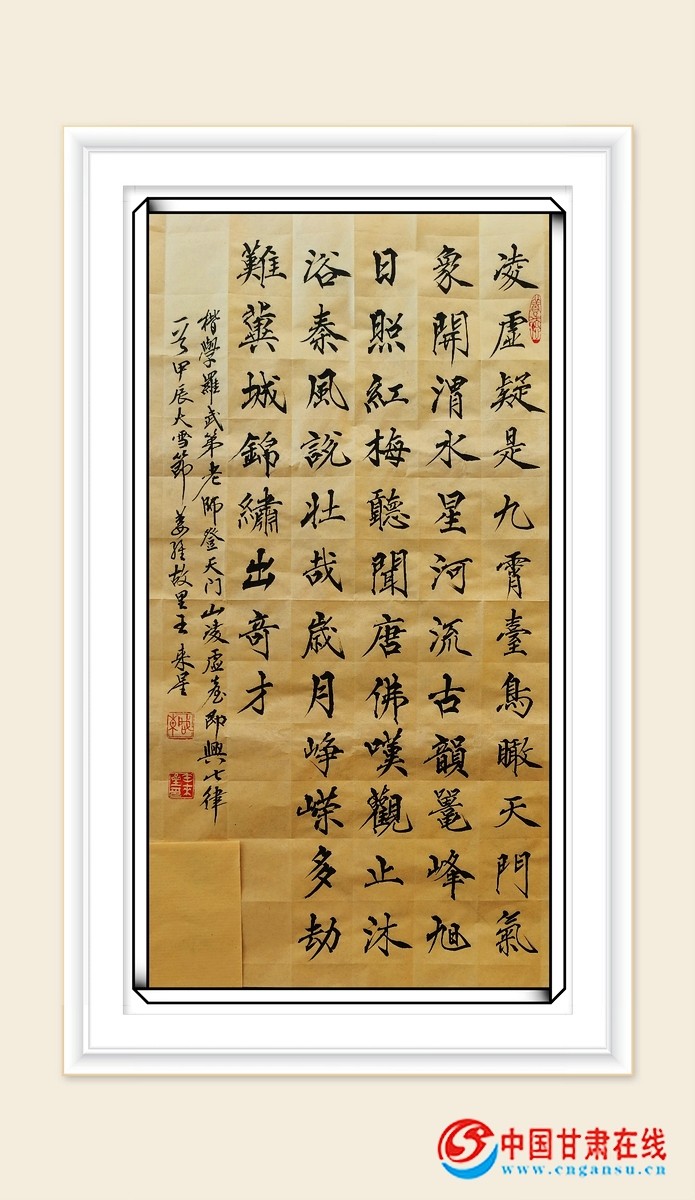 凌虚疑是九霄臺鳥瞰天門氣
象開渭水星河流古韻鼍峰旭
日照紅梅聽聞唐佛嘆觀止沐
浴秦風説壮哉歲月崢嶸多劫
難冀城錦繡出奇才
楷學羅武第老師登天门山凌虚臺即興七律
一首甲辰大雪節姜維故里王來星
中国甘肃在线
www.cngansu.cn